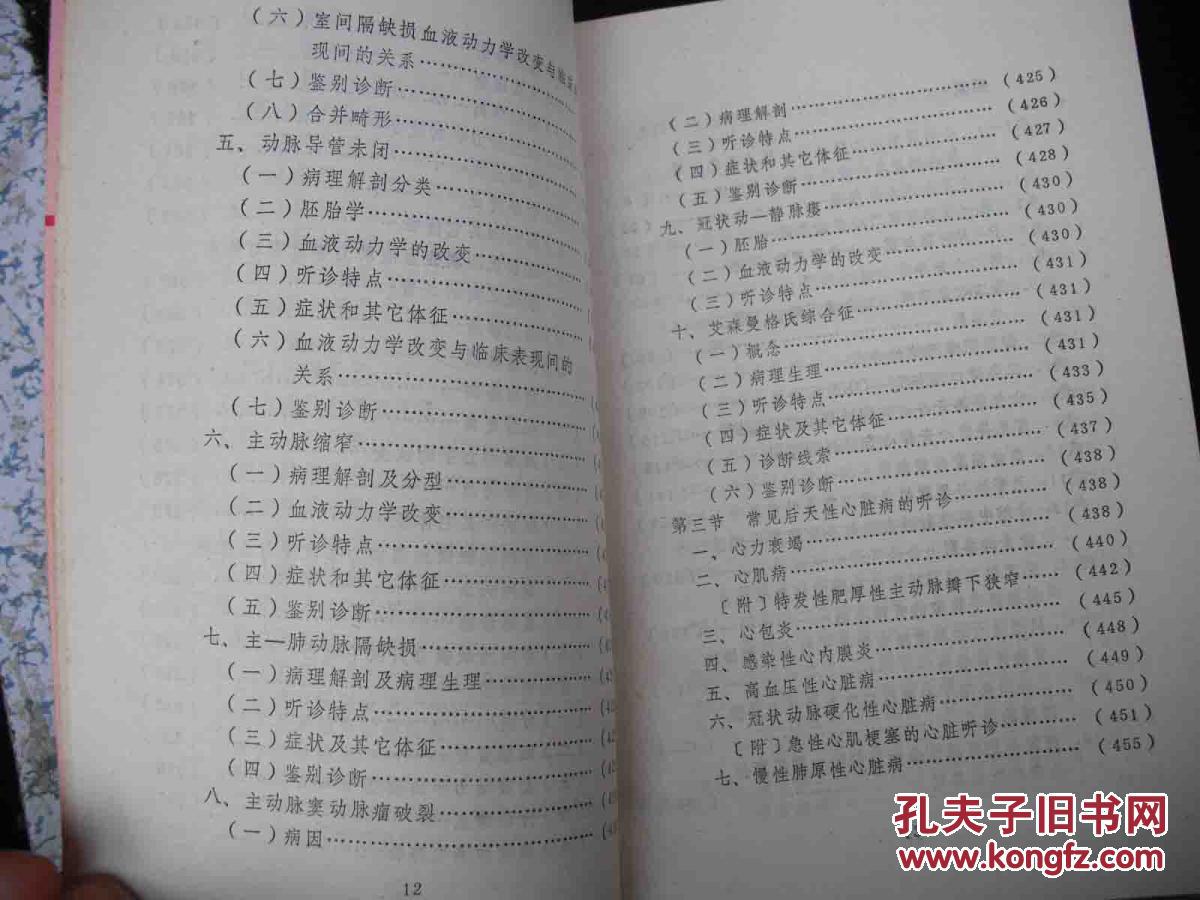 （六）室间隔缺损血液动力学改变与临床
现间的关系
（七）鉴别诊断
（八）合并畸形
五、动脉导管未闭
（一）病理解剖分类
（二）胚胎学
（三）血液动力学的改变
（四）听诊特点
（五）症状和其它体征
（六）血液动力学改变与临床表现间的
关系
（七）鉴别诊断
六、主动脉缩窄
（一）病理解剖及分型
（二）血液动力学改变
（三）听诊特点
（四）症状和其它体征
（五）鉴别诊断
七、主—肺动脉隔缺损
（一）病理解剖及病理生理
（二）听诊特点
（三）症状及其它体征
（四）鉴别诊断
八、主动脉窦动脉瘤破裂
（一）病因
12
（二）病理解剖……（425）
（三）听诊特点……（426）
（四）症状和其它体征……（427）
（五）鉴别诊断……（428）
九、冠状动—静脉瘘……（430）
（一）胚胎……（430）
（二）血液动力学的改变……（430）
（三）听诊特点……（431）
十、艾森曼格氏综合征……（431）
（一）概念……（431）
（二）病理生理……（431）
（三）听诊特点……（433）
（四）症状及其它体征……（435）
（五）诊断线索……（437）
（六）鉴别诊断……（438）
第三节 常见后天性心脏病的听诊……（438）
一、心力衰竭……（438）
二、心肌病……（440）
〔附〕特发性肥厚性主动脉瓣下狭窄……（442）
三、心包炎……（445）
四、感染性心内膜炎……（448）
五、高血压性心脏病……（449）
六、冠状动脉硬化性心脏病……（450）
〔附〕急性心肌梗塞的心脏听诊……（451）
七、慢性肺原性心脏病……（455）
孔夫子旧书网
www.kongfz.com